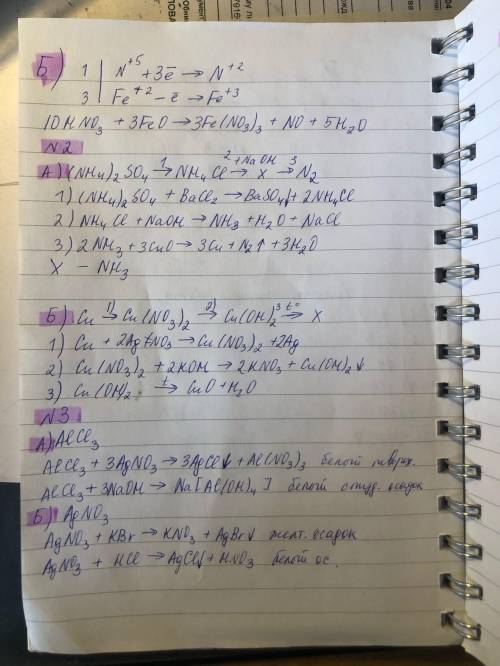 Б) 1 | N⁺⁵ + 3ē → N⁺²
3 | Fe⁺² − ē → Fe⁺³
10HNO₃ + 3FeO → 3Fe(NO₃)₃ + NO + 5H₂O
N2
А) (NH₄)₂SO₄ →¹ NH₄Cl →²⁺ᴺᵃᴼᴴ X →³ N₂
1) (NH₄)₂SO₄ + BaCl₂ → BaSO₄↓ + 2NH₄Cl
2) NH₄Cl + NaOH → NH₃ + H₂O + NaCl
3) 2NH₃ + 3CuO → 3Cu + N₂↑ + 3H₂O
X – NH₃
Б) Cu →¹⁾ Cu(NO₃)₂ →²⁾ Cu(OH)₂ →³ ᵗ° X
1) Cu + 2AgNO₃ → Cu(NO₃)₂ + 2Ag
2) Cu(NO₃)₂ + 2KOH → 2KNO₃ + Cu(OH)₂↓
3) Cu(OH)₂ →ᵗ CuO + H₂O
N3
А) AlCl₃
AlCl₃ + 3AgNO₃ → 3AgCl↓ + Al(NO₃)₃ белый творож.
AlCl₃ + 3NaOH → Na[Al(OH)₄] белый студ. осадок
Б) AgNO₃
AgNO₃ + KBr → KNO₃ + AgBr↓ желт. осадок
AgNO₃ + HCl → AgCl↓ + HNO₃ белый ос.